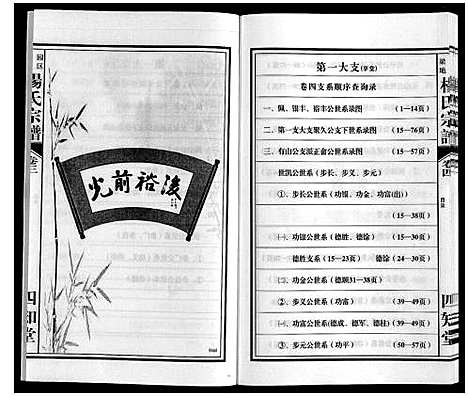 园区
楊氏宗譜
卷三
四知堂
光前裕後
楊氏宗譜
卷四
目录
四知堂
第一大支(享堂)
卷四支系顺序查询录
一、佩、银丰、裕丰公世系录图 (1—14页)
二、第一大支友聚久公支下世系录图 (15—76页)
三、有山公支派正俞公世系录图 (15—57页)
世凯公世系(步长、步义、步元)
①、步长公世系(功银、功金、功富(出))
(15—38页)
㈠、功银公世系(德胜、德徐) (15—30页)
德胜支系(15—23页) 德徐(24—30页)
㈡、功金公世系(德顺31—38页)
②、步义公世系(功富) (39—49页)
㈠、功富公世系(德成、德军、德柱) (39—49页)
③、步元公世系(功平) (50—57页)